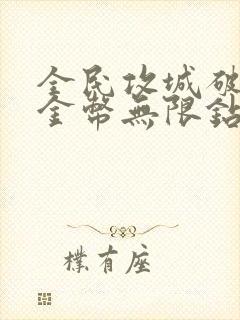 全民攻城破
金幣無限鉆
樸有座